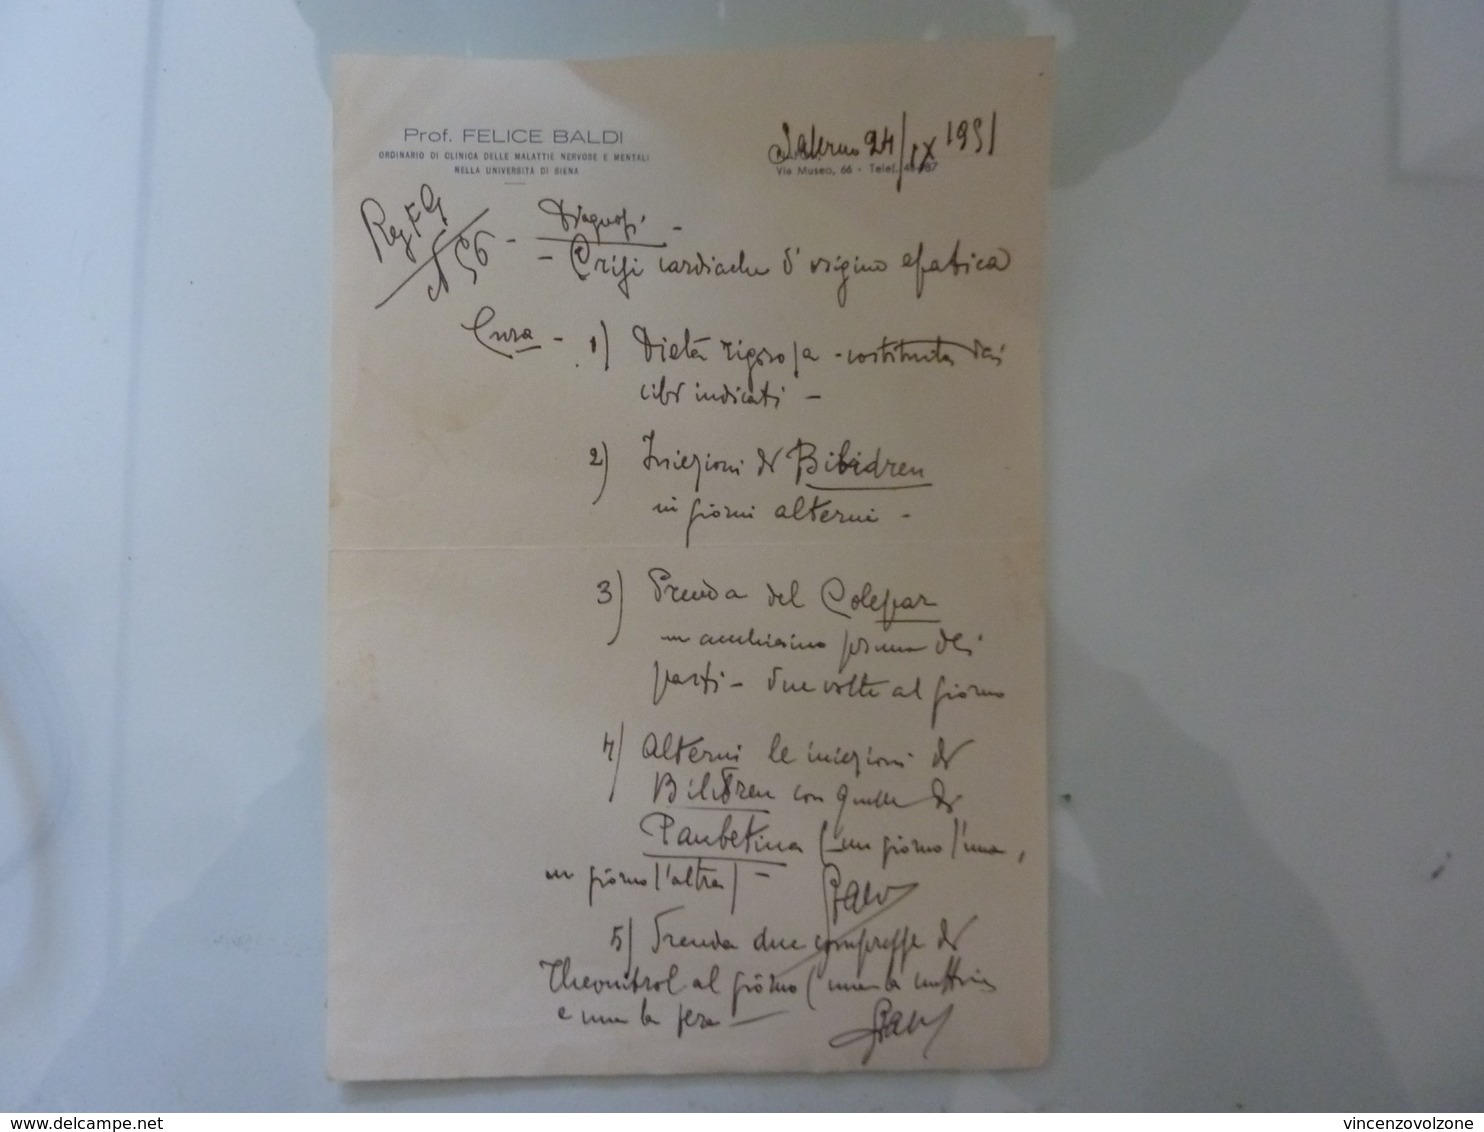 Prof. FELICE BALDI
ORDINARIO DI CLINICA DELLE MALATTIE NERVOSE E MENTALI
NELLA UNIVERSITÀ DI SIENA
Salerno 24/IX 1951
Via Museo, 66 - Telef.
Reg FG
N 56 - Diagnosi -
- Crisi cardiache d'origine epatica
Cura - 1) Dieta rigorosa - costituita dai
cibi indicati -
2) Iniezioni di Bilidren
in giorni alterni -
3) Prenda del Colepar
un cucchiaino prima dei
pasti - due volte al giorno
4) Alterni le iniezioni di
Bilidren con quelle di
Panbetina (un giorno l'una,
un giorno l'altra) -
5) Prenda due compresse di
Theonitrol al giorno (una la mattina
e una la sera -
delcampe.net
vincenzovolzone